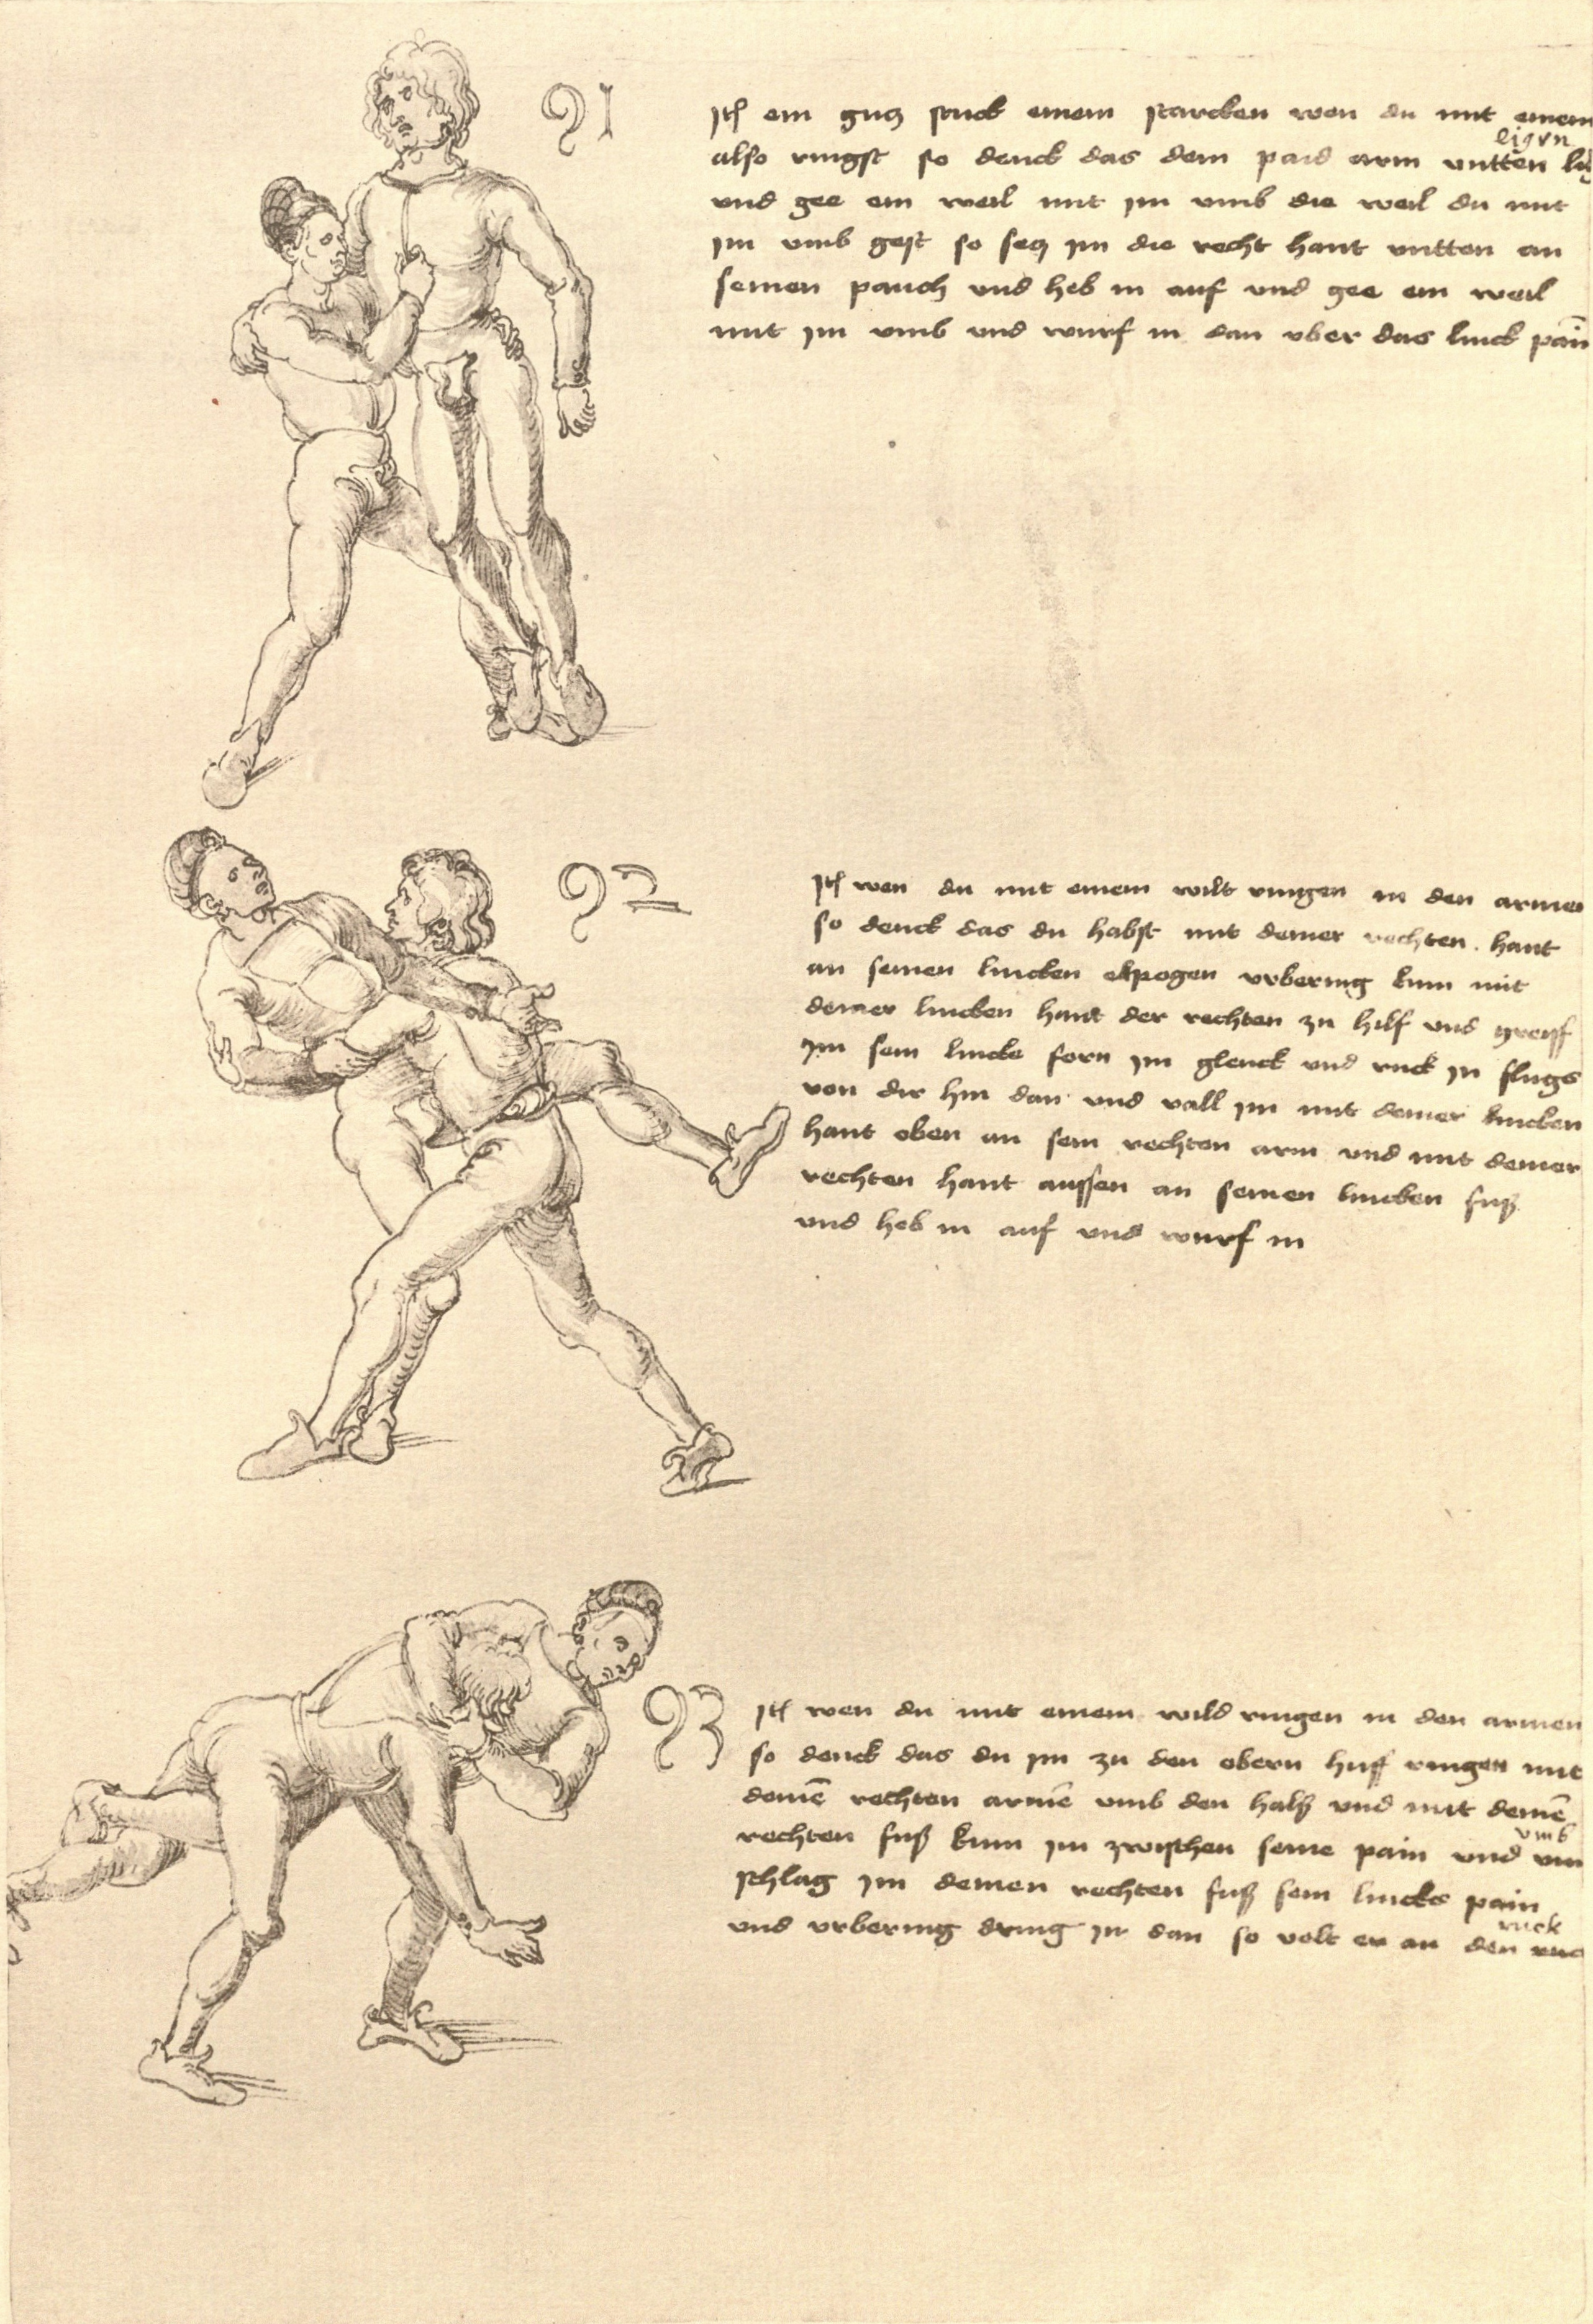 91
Jtꝭ ein gutz stuck einem starcken wen du mit einem
ligen
also ringst so denck das dein paid arm vntten
vnd gee ein weil mit im vmb die weil du mit
im vmb geist so setz im die recht hant vntten an
seinen pauch vnd heb in auf vnd gee ein weil
mit im vmb vnd wurf in dan vber das linck pain
92
Jtꝭ wen du mit einem wilt ringen in den armen
so denck das du habst mit deiner rechten hant
an seinen lincken elpogen vrbering kum mit
deiner lincken hant der rechten zu hilf vnd greiff
im sein lincke forn im glenck vnd ruck in flugs
von dir hin dan vnd vall im mit deiner lincken
hant oben an sein rechten arm vnd mit deiner
rechten hant aussen an seinen lincken fuß
vnd heb in auf vnd wurf in
93
Jtꝭ wen du mit einem wild ringen in den armen
so denck das du im zu den obern huff ringen mit
deinē rechten armē vmb den halß vnd mit deinē
vmb
rechten fuß kum im zwischen seine pain vnd vm
schlag im deinen rechten fuß sein lincks pain
ruck
vnd vrbering dring in dan so velt er an den